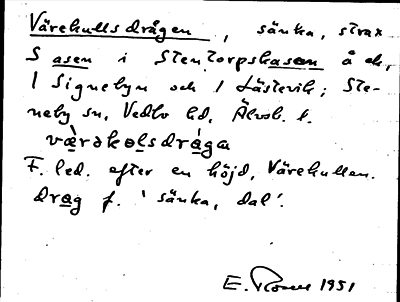 Värekullsdrågen, sänka, strax
S åsen i Stentorpskasen å ch,
1 Signebyn och 1 Lästevik; Ste-
neby sn, Vedbo hd, Älvsb. l.
væ̀rəkolsdrága
F. led. efter en höjd, Värekullen.
drag f. 'sänka, dal'.
E. 1951